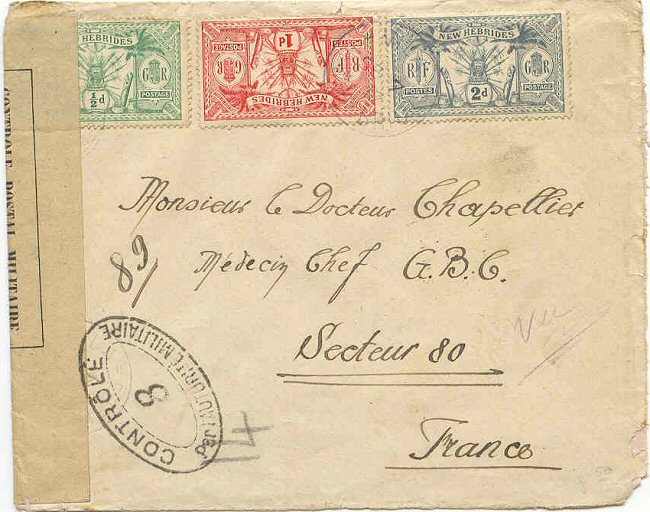 NEW HEBRIDES
½d
G R
POSTAGE
NEW HEBRIDES
1d
R F
G R
POSTES
POSTAGE
NEW HEBRIDES
R F
G R
POSTES
2d
POSTAGE
CONTROLE POSTAL MILITAIRE
Monsieur le Docteur Chapellier
89
Médecin Chef G.B.C.
Vu
Secteur 80
CONTRÔLE
PAR L'AUTORITÉ MILITAIRE
8
14
France